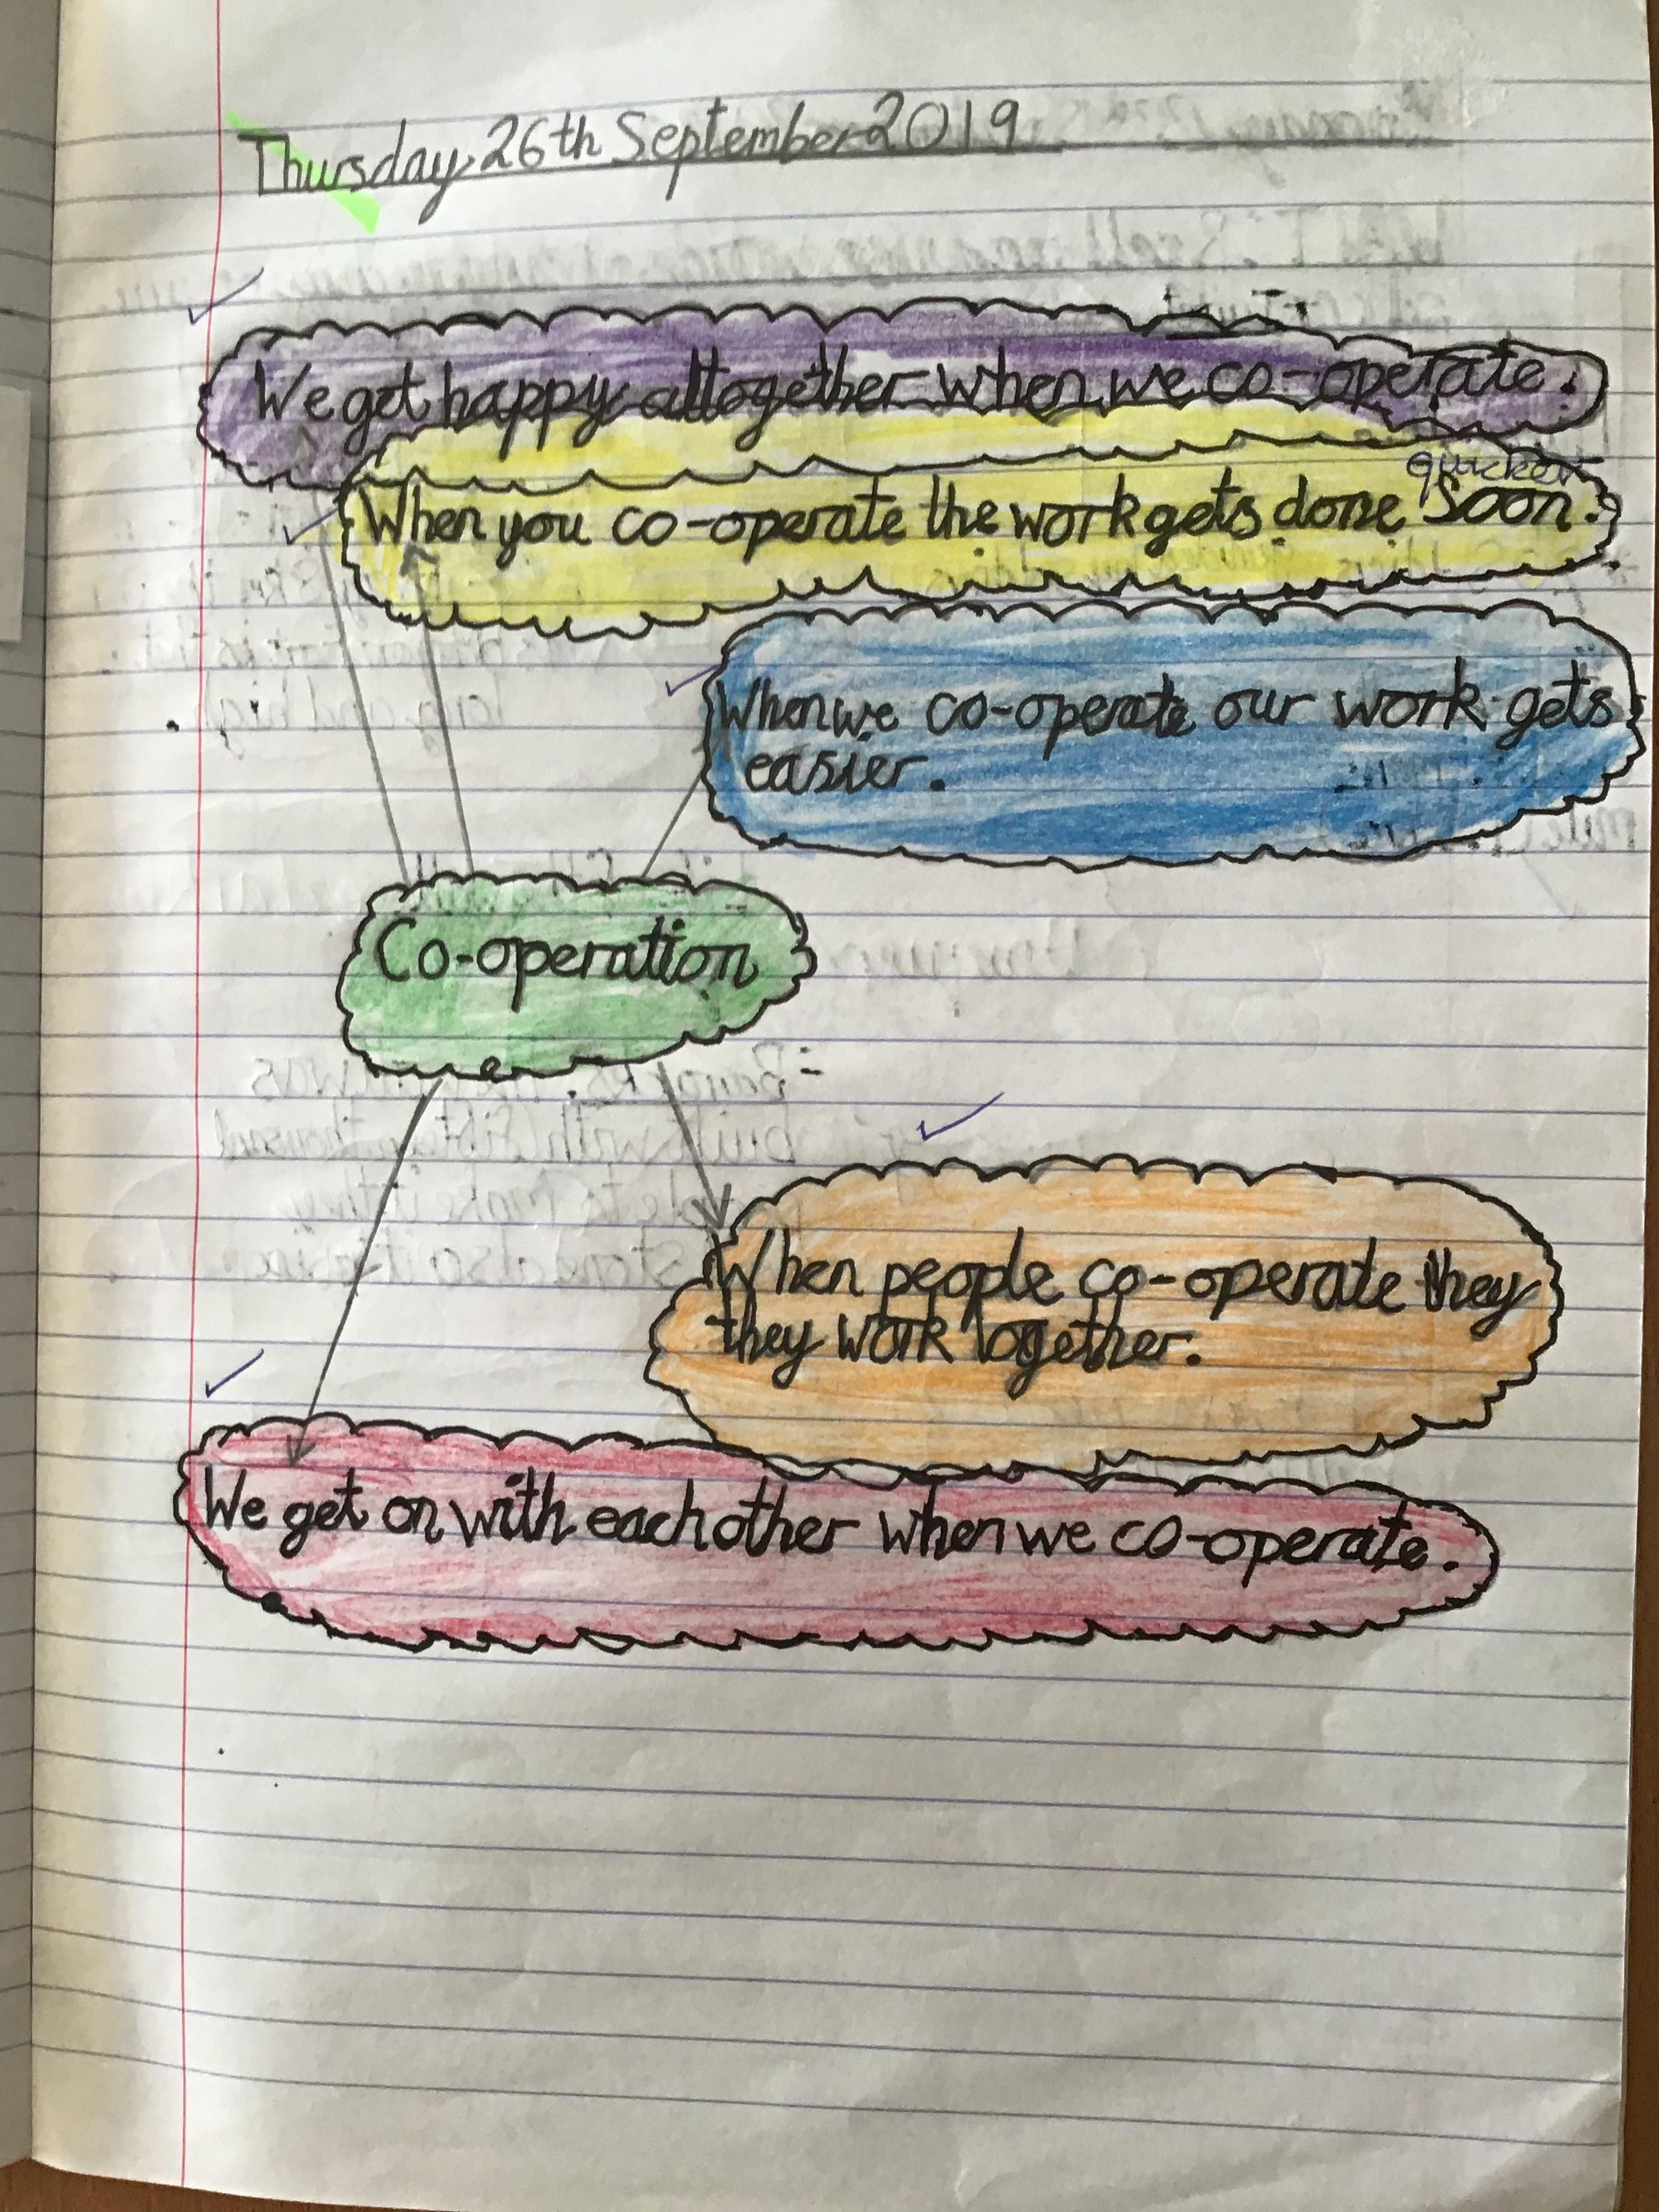 Thursday 26th September 2019
We get happy alltogether when we co-operate.
quicker
When you co-operate the work gets done soon.
When we co-operate our work gets
easier.
Co-operation
When people co-operate they
they work together.
We get on with each other when we co-operate.